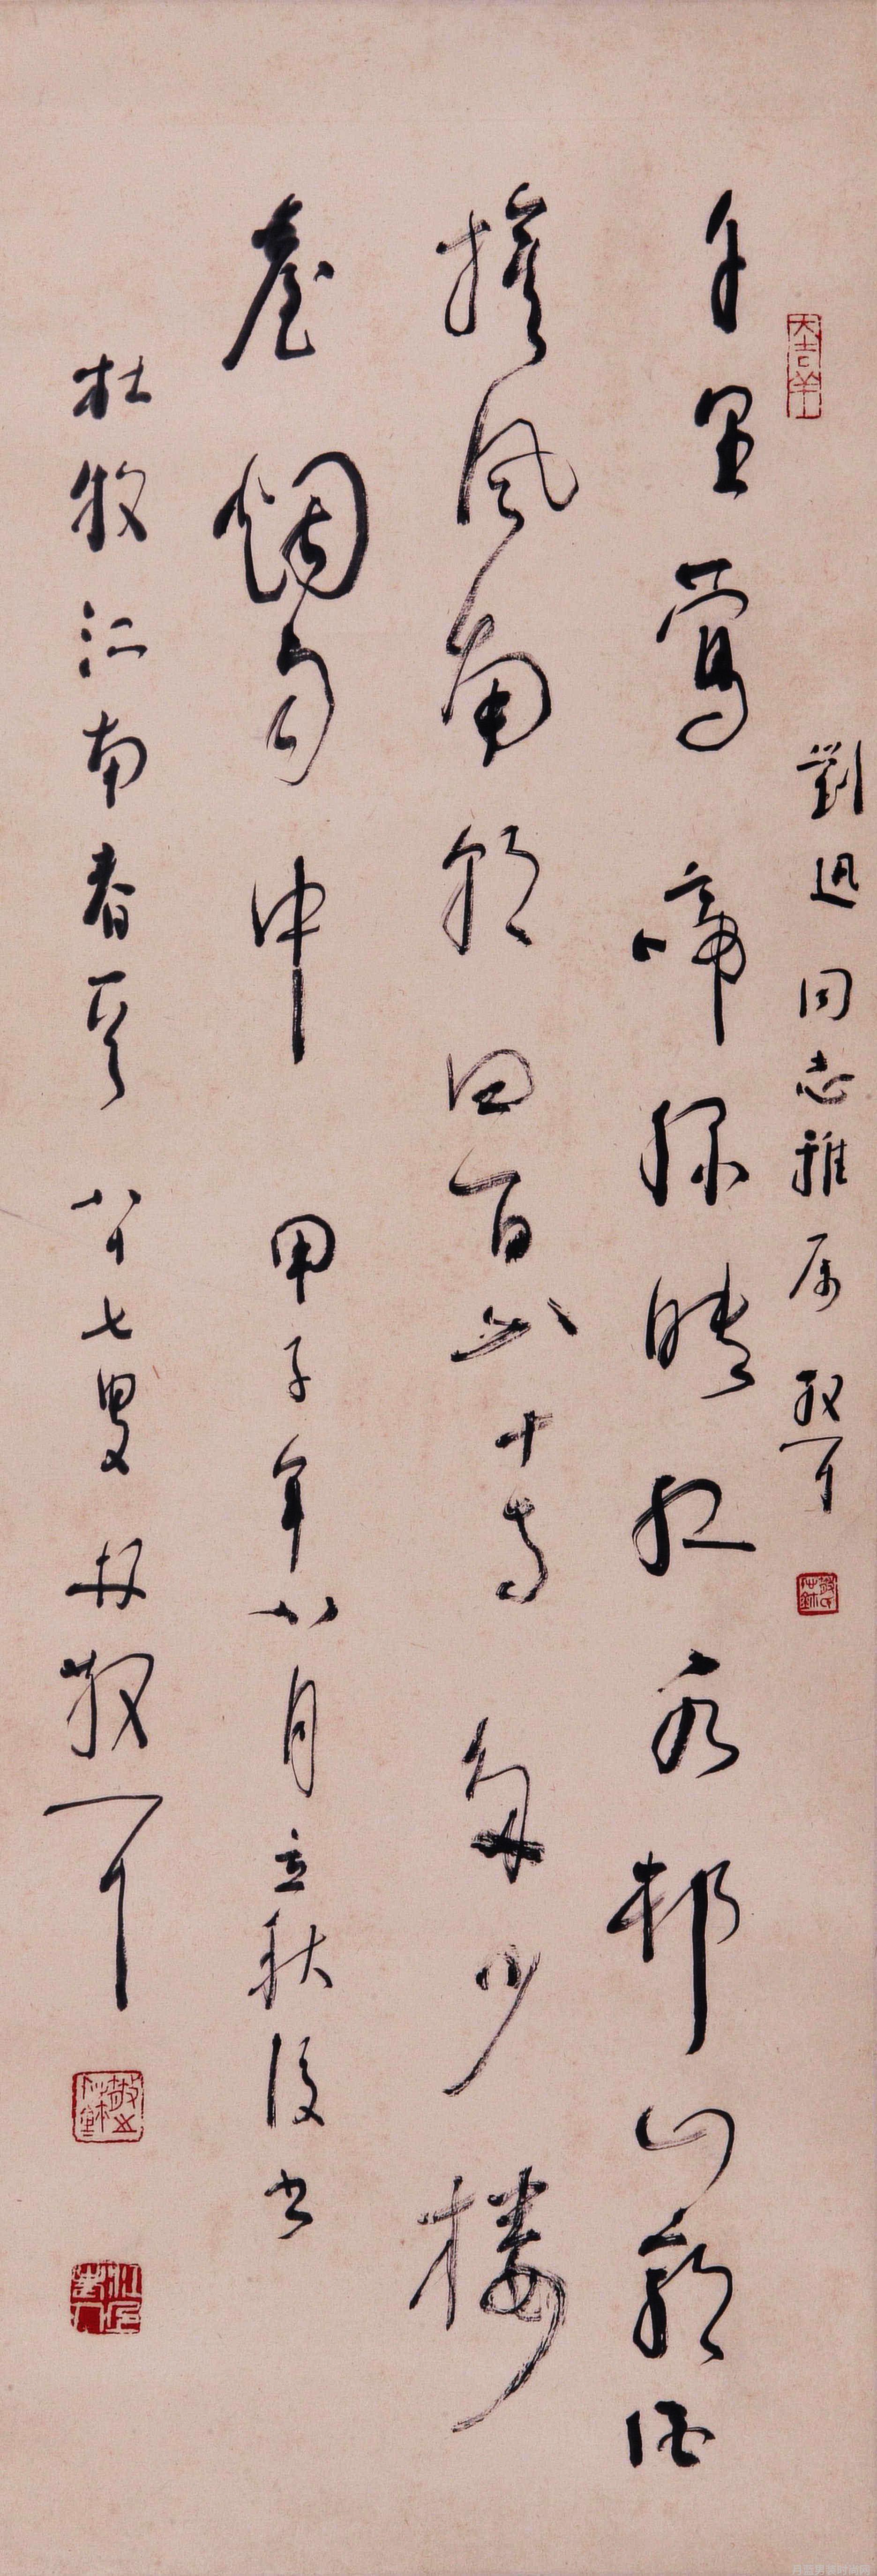 大吉羊
劉迅同志雅属 散耳
千里鶯啼綠映紅水邨山郭酒
旗風南朝四百八十寺多少楼
臺烟雨中 甲子年八月立秋後书
杜牧江南春一首 八十七叟 林散耳